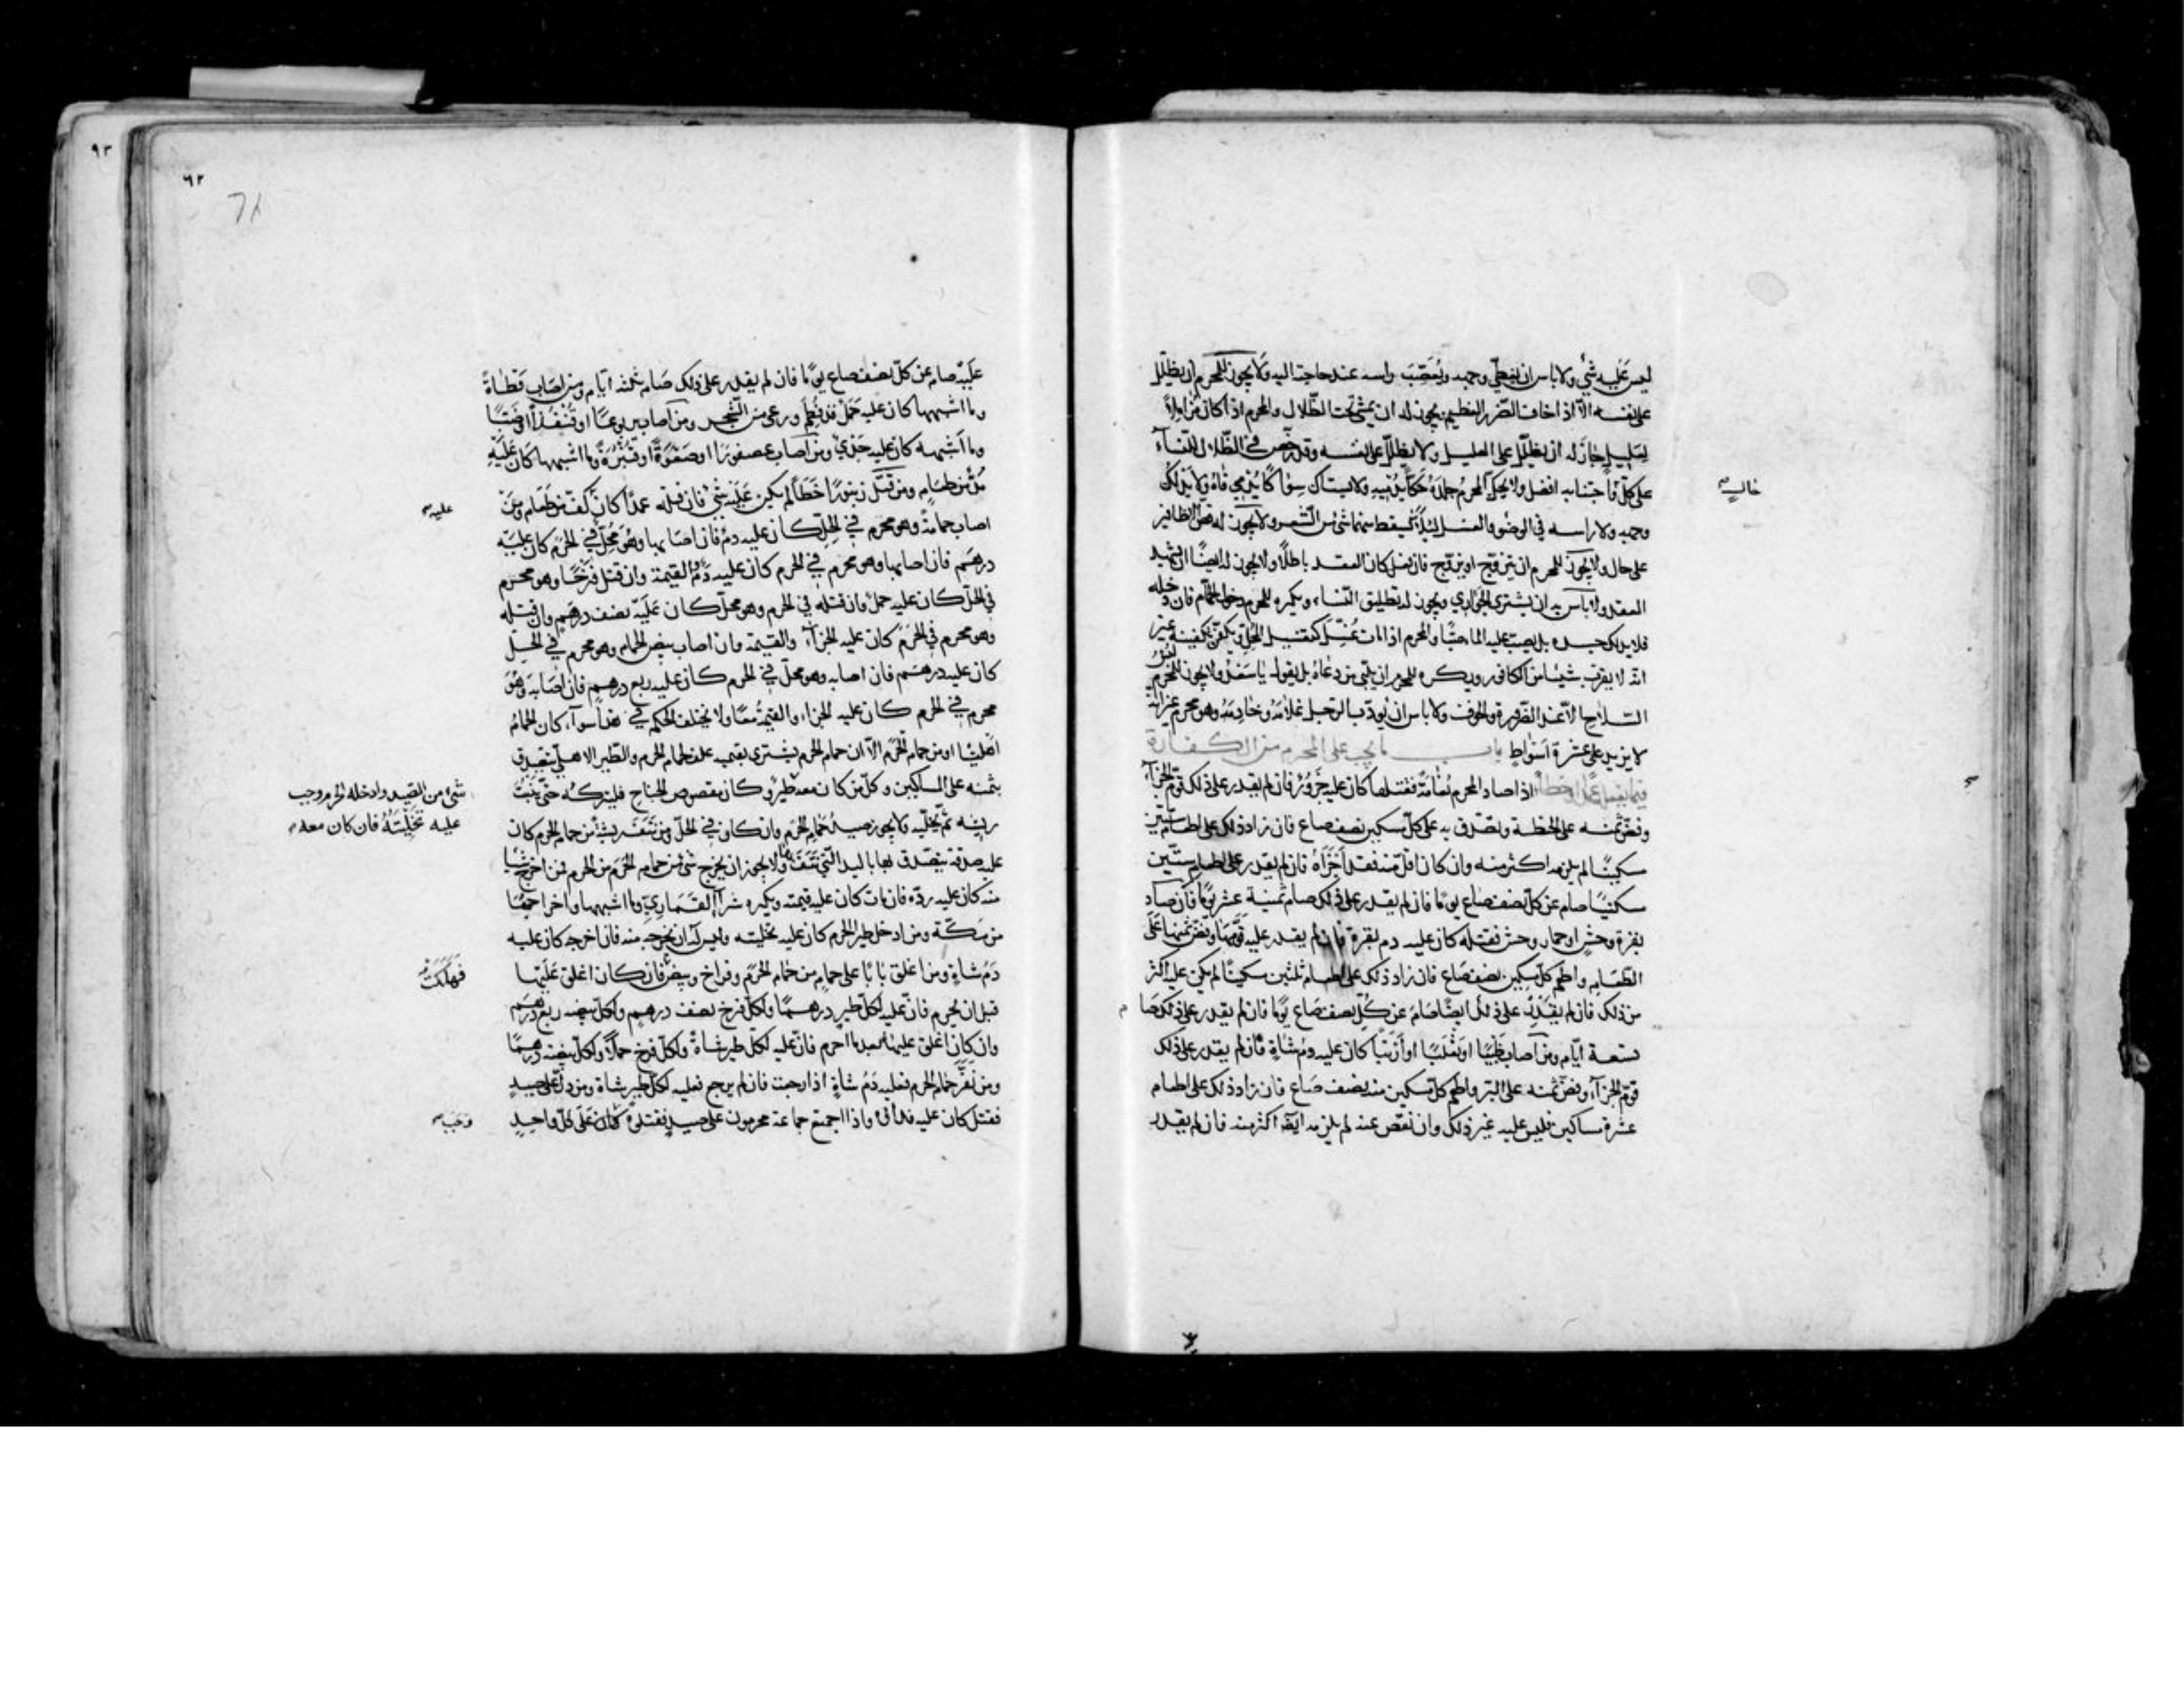 ليس عليه شي ولا باس ان يغطي وجهه ويعصب راسه عند حاجته اليه ولا يجوز للمحرم ان يظلل
على نفسه الا اذا خاف الضرر العظيم يجوز له ان يمشي تحت الظلال والمحرم اذا كان مزاملا
لعليل جاز له ان يظلل على العليل ولا يظلل على نفسه وقد رخص في الظلال للنسآء
على كل حال واجتنابه افضل ولا يحك المحرم جلده حكا يدميه ولا يستاك سواكا يدمي فاه ولا يدلك
وجهه ولا راسه في الوضوء والغسل ليلا يسقط منهما شي من الشعر ولا يجوز له قص الاظافير
على حال ولا يجوز للمحرم ان يتزوج او يزوج فان فعل كان العقد باطلا ولا يجوز له ايضا ان يشهد
العقد ولا باس به ان يشتري الجواري ويجوز له تطليق النساء ويكره للمحرم دخول الحمام فان دخله
فلا يدلك جسده بل يصب عليه الما صبا والمحرم اذا مات غسل كتغسيل المحل ويكفن تكفينه غير
انه لا يقرب شيئا من الكافور ويكره للمحرم ان يلبي من دعاه بل يقول يا سعد ولا يجوز للمحرم لبس
السلاح الا عند الضرورة والخوف ولا باس ان يودب الرجل غلامه وخادمه وهو محرم غير انه
لا يزيد على عشرة اسواط باب ما يجب على المحرم من الكفارة
فيما يفعله عمدا او خطأ اذا صاد المحرم نعامة فقتلها كان عليه جزور فان لم يقدر على ذلك قوم الجزآء
وفض ثمنه على الحنطة وتصدق به على كل مسكين نصف صاع فان زاد ذلك على طعام ستين
مسكينا لم يلزمه اكثر منه وان كان اقل منه فقد اجزاه فان لم يقدر على اطعام ستين
مسكينا صام عن كل نصف صاع يوما فان لم يقدر على ذلك صام ثمنية عشر يوما فان صاد
بقرة وحش او حمار وحش فقتله كان عليه دم بقرة فان لم يقدر عليه قومها وفض ثمنها على
الطعام واطعم كل مسكين نصف صاع فان زاد ذلك على اطعام ثلثين مسكينا لم يكن عليه اكثر
من ذلك فان لم يقدر على ذلك ايضا صام عن كل نصف صاع يوما فان لم يقدر على ذلك صام
تسعة ايام ومن اصاب ظبيا او ثعلبا او ارنبا كان عليه دم شاة فان لم يقدر على ذلك
قوم الجزآء وفض ثمنه على البر واطعم كل مسكين منه نصف صاع فان زاد ذلك على اطعام
عشرة مساكين فليس عليه غير ذلك وان نقص عنه لم يلزمه ايضا اكثر منه فان لم يقدر
حال
٩٣
٩٢
عليه صام عن كل نصف صاع يوما فان لم يقدر على ذلك صام ثلثة ايام ومن اصاب قطاة
وما اشبهها كان عليه حمل قد فطم ورعى من الشجر ومن اصاب يربوعا او قنفذا او ضبا
وما اشبهه كان عليه جدي ومن اصاب عصفورا او صعوة او قنبرة وما اشبهها كان عليه
مد من طعام ومن قتل زنبورا خطأ لم يكن عليه شي فان قتله عمدا كان كف من طعام ومن
اصاب حمامة وهو محرم في الحل كان عليه دم فان اصابها وهو محل في الحرم كان عليه
درهم فان اصابها وهو محرم في الحرم كان عليه دم والقيمة وان قتل فرخا وهو محرم
في الحل كان عليه حمل وان قتله في الحرم وهو محل كان عليه نصف درهم وان قتله
وهو محرم في الحرم كان عليه الجزآء والقيمة وان اصاب بيض الحمام وهو محرم في الحل
كان عليه درهم فان اصابه وهو محل في الحرم كان عليه ربع درهم فان اصابه وهو
محرم في الحرم كان عليه الجزاء والقيمة معا ولا يختلف الحكم في هذا سوآء كان الحمام
اهليا او من حمام الحرم الا ان حمام الحرم يشترى بقيمته علف لحمام الحرم والطير الاهلي يتصدق
بثمنه على المساكين وكل من كان معه طير وكان مقصوص الجناح فليتركه حتى ينبت
ريشه ثم يخليه ولا يجوز صيد حمام الحرم وان كان في الحل ومن نتف ريشا من حمام الحرم كان
عليه صدقة يتصدق بها باليد التي نتفه بها ولا يجوز ان يخرج شي من حمام الحرم من الحرم فمن اخرج شيا
منه كان عليه رده فان مات كان عليه قيمته ويكره شرآء القماري وما اشبهها واخراجها
من مكة ومن ادخل طيرا الحرم كان عليه تخليته وليس له ان يخرجه منه فان اخرجه كان عليه
دم شاة ومن اغلق بابا على حمام من حمام الحرم وفراخ وبيض فان كان اغلق عليها
قبل ان يحرم فان عليه لكل طير درهما ولكل فرخ نصف درهم ولكل بيضة ربع درهم
وان كان اغلق عليها بعد ما احرم فان عليه لكل طير شاة ولكل فرخ حملا ولكل بيضة درهما
ومن نفر حمام الحرم فعليه دم شاة اذا رجعت فان لم يرجع فعليه لكل طير شاة ومن دل على صيد
فقتل كان عليه فداؤه واذا اجتمع جماعة محرمون على صيد فقتلوه كان على كل واحد
عليه
شي من الصيد وادخله الحرم وجب
عليه تخليته فان كان معه
فهلكت
وجب